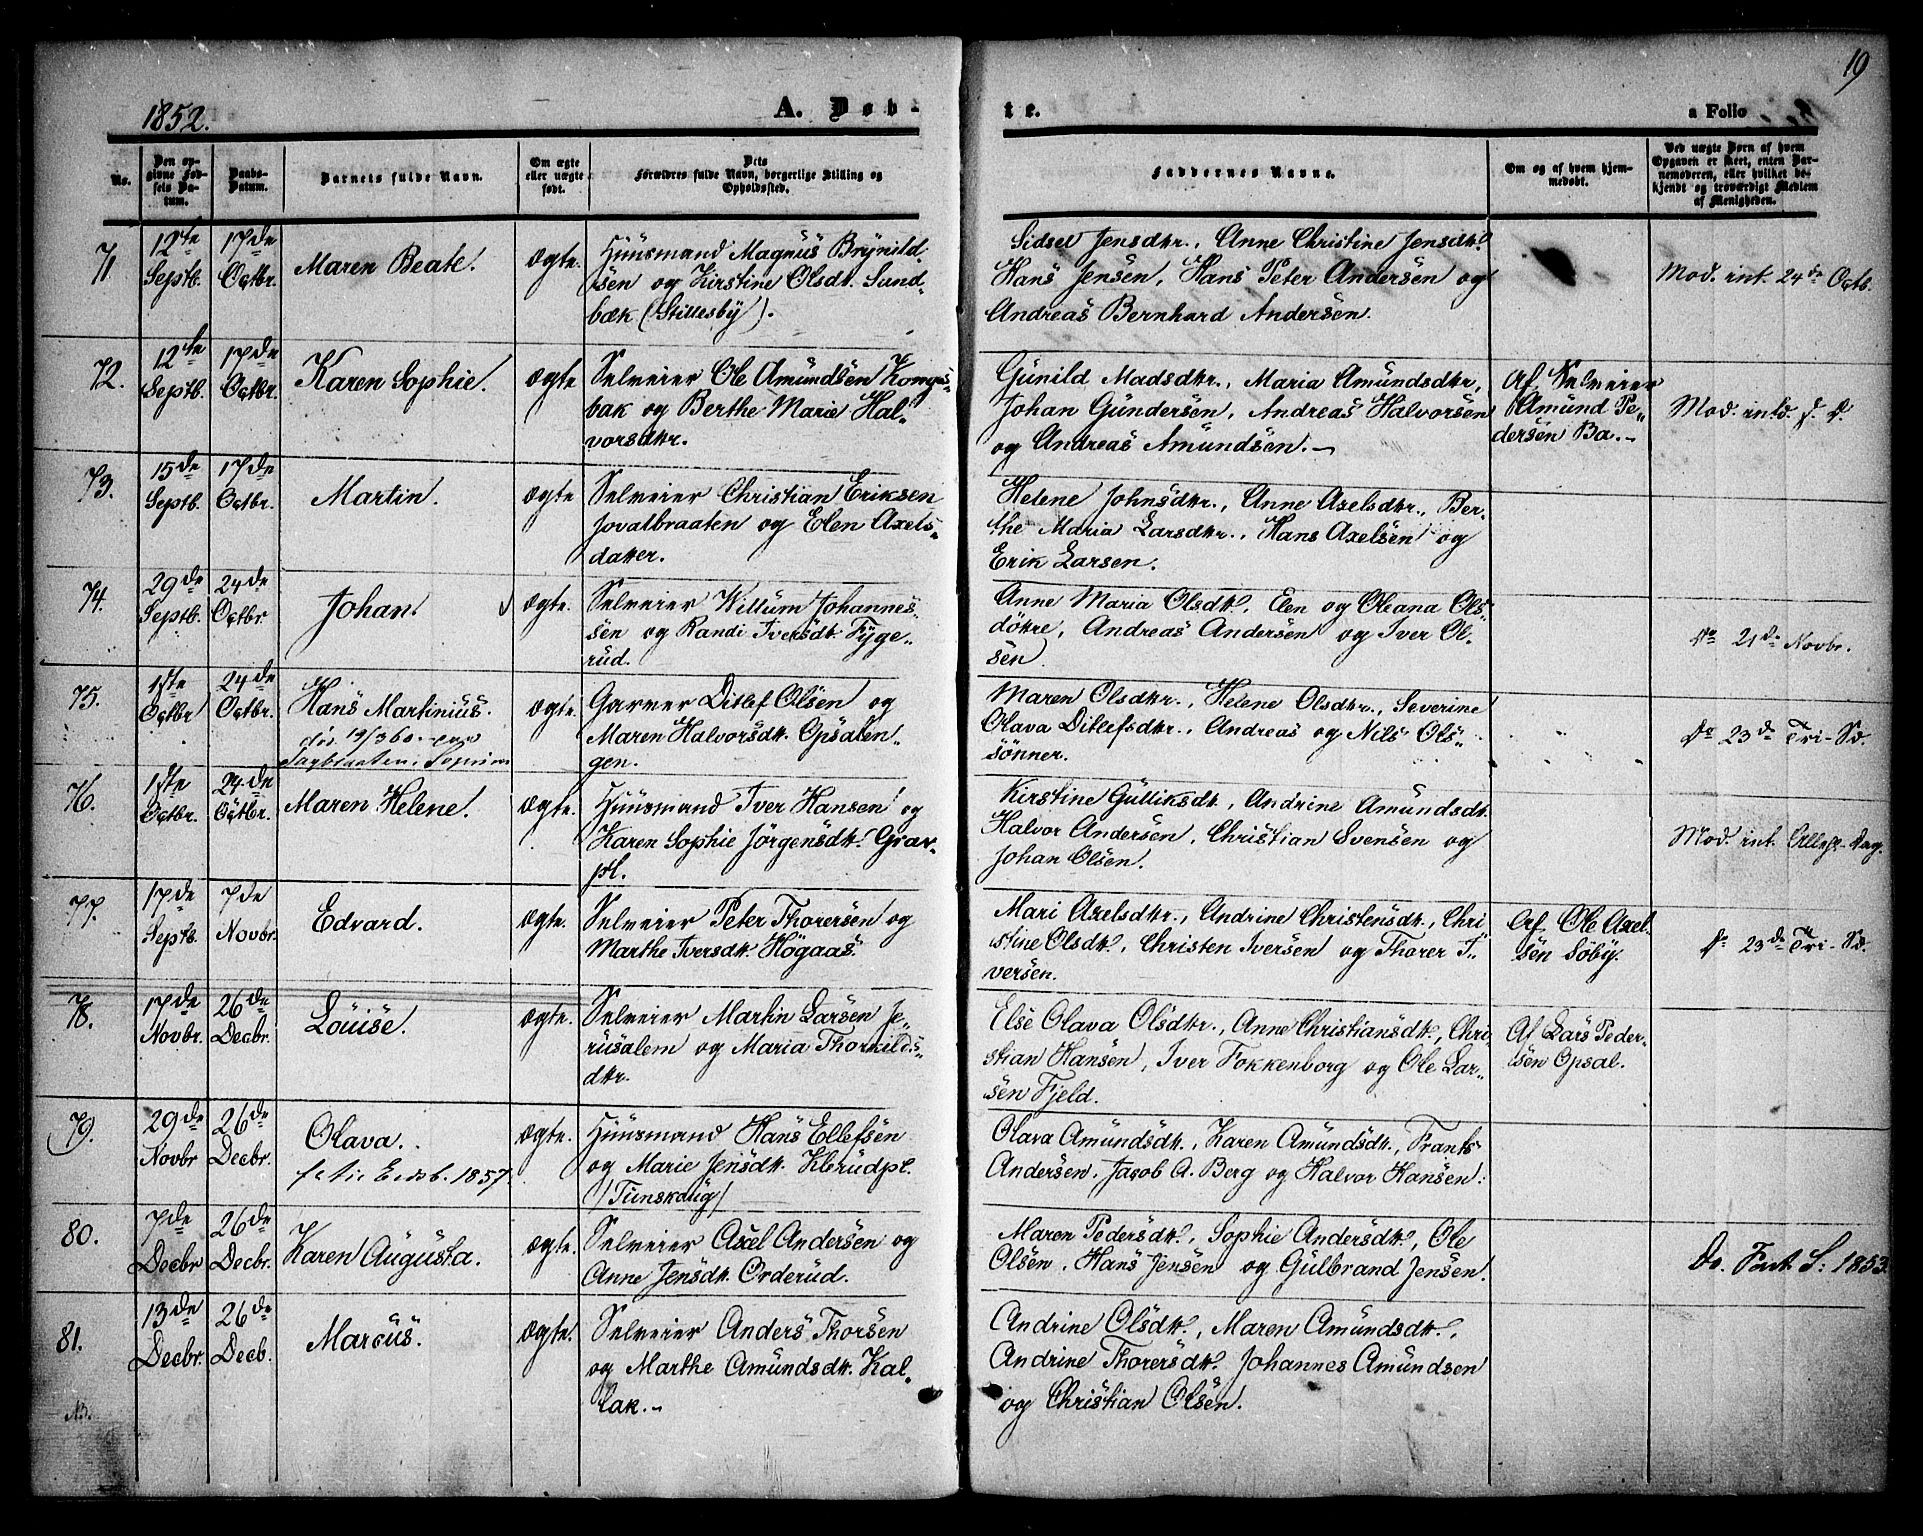 19
1852.
A. Døb-
te.
a Folio
No.
Den op-
givne Fød-
sels Da-
tum.
Daabs-
Datum.
Barnets fulde Navn.
Om ægte
eller uægte
født.
Dets
Forældres fulde Navn, borgerlige Stilling og
Opholdssted.
Faddernes Navne.
Om og af hvem hjem-
medøbt.
Ved uægte Børn af hvem
Opgaven er skeet, enten Bar-
nemoderen, eller hvilket be-
kjendt og troværdigt Medlem
af Menigheden.
71
12te
Septb.
17de
Octbr.
Maren Beate.
Ægte.
Huusmand Magnus Brynild-
sen og Kirstine Olsdt. Sund-
bæk (Stillesby).
Sidsel Jensdtr., Anne Christine Jensdtr.
Hans Jensen, Hans Peter Andersen og
Andreas Bernhard Andersen.
Mod. int. 24de Octb.
72.
12te
Septb.
17de
Octbr.
Karen Sophie.
Ægte
Selveier Ole Amundsen Kongs-
bak og Berthe Marie Hal-
vorsdtr.
Gunild Madsdtr., Maria Amundsdtr,
Johan Gundersen, Andreas Halvorsen
og Andreas Amundsen.
Af Selveier
Amund Pe-
dersen Ba.
Mod. intd. s. D.
73.
15de
Septb.
17de
Octbr.
Martin.
Ægte
Selveier Christian Eriksen
Jovalbraaten og Elen Axels-
datter.
Helene Johnsdtr., Anne Axelsdtr., Ber-
the Maria Larsdtr., Hans Axelsen og
Erik Larsen.
74.
29de
Septb.
24de
Octbr
Johan.
Ægte.
Selveier Willum Johannes-
sen og Randi Iversdt. Tyge-
rud.
Anne Maria Olsdt., Elen og Oleana Ols-
døtre, Andreas Andersen og Iver Ol-
sen.
Do 21de Novbr.
75.
1ste
Octbr
24de
Octbr.
Hans Martinius.
døv. 19/3 60.
Ægte.
Garver Ditlef Olsen og
Maren Halvorsdt. Opsalen-
gen.
Maren Olsdtr., Helene Olsdtr., Severine
Olava Ditlefsdtr., Andreas og Nils Ols-
sønner.
Do 23de Tri-Sd.
76.
1ste
Octbr.
24de
Octbr.
Maren Helene.
Ægte.
Huusmand Iver Hansen og
Karen Sophie Jørgensdt. Grav-
pl.
Kirstine Gulliksdt., Andrine Amundsdt.
Halvor Andersen, Christian Svensen og
Johan Olsen.
Mod. int. Allehr. Dag.
77.
17de
Septb.
7de
Novbr.
Edvard.
Ægte.
Selveier Peter Thorersen og
Marthe Iversdt. Högaas.
Mari Axelsdtr., Andrine Christensdt., Chri-
stine Olsdt., Christen Iversen og Thorer I-
versen.
Af Ole Axel-
sen Söby.
Do 23de Tri-Sd.
78.
17de
Novbr.
26de
Decbr.
Louise.
Ægte.
Selveier Martin Larsen Je-
rusalem og Maria Thorkilds-
dtr.
Else Olava Olsdtr., Anne Christiansdt., Chri-
stian Hansen, Iver Fokkenborg og Ole Lar-
sen Fjeld.
Af Lars Peder-
sen Opsal.
79.
29de
Novbr
26de
Decbr.
Olava.
1857
Ægte.
Huusmand Hans Ellefsen
og Marie Jensdt. Klerudpl.
(Tunskoug)
Olava Amundsdt., Karen Amundsdt., Frants
Andersen, Jacob A. Berg og Halvor Hansen.
80.
7de
Decbr
26de
Decbr.
Karen Augusta.
Ægte.
Selveier Axel Andersen og
Anne Jensdt. Orderud.
Maren Pedersdt., Sophie Andersdt., Ole
Olsen, Hans Jensen og Gulbrand Jensen.
Do. Fast. S: 1853.
81.
13de
Decbr.
26de
Decb.
Marcus.
Ægte.
Selveier Anders Thorsen
og Marthe Amundsdt. Kal-
lak.
Andrine Olsdt., Maren Amundsdt.,
Andrine Thorersdt. Johannes Amundsen
og Christian Olsen.